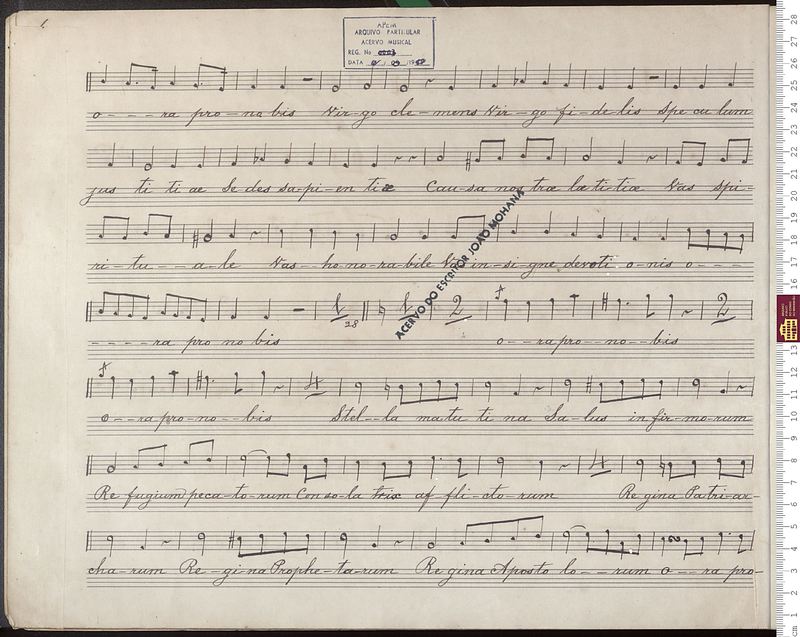 APEM
ARQUIVO PARTICULAR
ACERVO MUSICAL
REG. No
DATA
o----ra pro-no bis Vir-go cle-mens Vir-go fi-de-lis Spe cu lum
jus ti ti ae Se-des sa-pi-en tiæ Cau-sa nos træ læ ti-tiæ Vas Spi-
ri-tu--a-le Vas-ho-no-ra bile Vas in-si-gne devoti o-nis o----
----ra pro no bis 28 2 o--ra pro--no--bis 2
o--ra pro-no--bis 4 Stel--la ma tu ti na Sa-lus in fir-mo-rum
Re fugium peca-to-rum Con so-la trix af fli-cto-rum 4 Re gina Patri-ar-
cha-rum Re-gi-na Prophe-ta-rum Re gina Aposto lo--rum o--ra pro-
ACERVO DO ESCRITOR JOÃO MOHANA